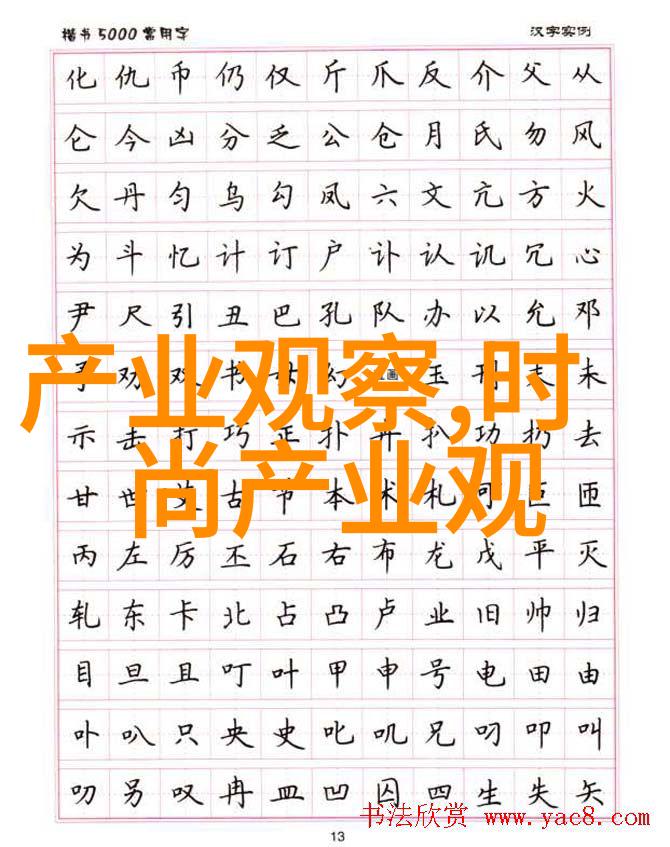 楷书5000常用字 汉字实例
化仇币仍仅斤爪反介父从
仑今凶分乏公仓月氏勿风
欠丹匀乌勾凤六文亢方火
为斗忆计订户讣认讥冗心
尹尺引丑巴孔队办以允邓
予劝双书毋幻 画 玉刊末未
产业观察,时
示击打巧正扑卉扒功扔去
尚产业观
甘世 古节本术札可叵匝
丙左厉丕石右布龙戊平灭
轧东卡北占凸卢业旧帅归
目旦且叮叶甲申号电田由
卟叭只央史叱叽兄叼叩叫
叨另叹冉皿凹囚四生失矢
书法欣赏 www.yac8.com
13